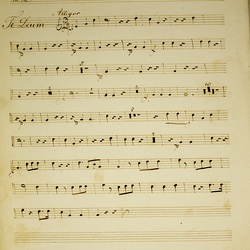 Allegro
Te Deum